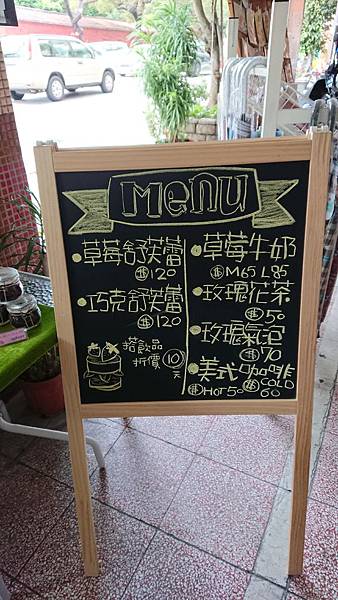 MeNU
草莓舒芙蕾
$120
巧克舒芙蕾
$120
搭飲品
折價10元
草莓牛奶
$M65 L85
玫瑰花茶
$50
玫瑰氣泡
$70
美式咖啡
$HOT50 $COLD 60